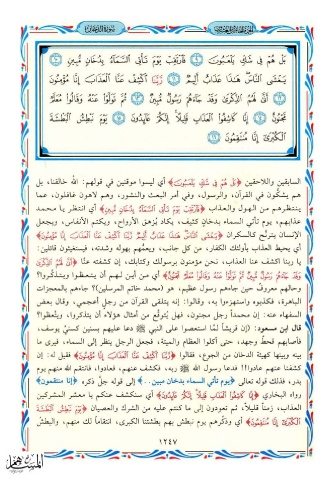 بَلْ هُمْ فِي شَكٍّ يَلْعَبُونَ ﴿٩﴾ فَارْتَقِبْ يَوْمَ تَأْتِي السَّمَاءُ بِدُخَانٍ مُّبِينٍ ﴿١٠﴾
يَغْشَى النَّاسَ هَٰذَا عَذَابٌ أَلِيمٌ ﴿١١﴾ رَّبَّنَا اكْشِفْ عَنَّا الْعَذَابَ إِنَّا مُؤْمِنُونَ
﴿١٢﴾ أَنَّىٰ لَهُمُ الذِّكْرَىٰ وَقَدْ جَاءَهُمْ رَسُولٌ مُّبِينٌ ﴿١٣﴾ ثُمَّ تَوَلَّوْا عَنْهُ وَقَالُوا مُعَلَّمٌ
مَّجْنُونٌ ﴿١٤﴾ إِنَّا كَاشِفُو الْعَذَابِ قَلِيلًا إِنَّكُمْ عَائِدُونَ ﴿١٥﴾ يَوْمَ نَبْطِشُ الْبَطْشَةَ
الْكُبْرَىٰ إِنَّا مُنتَقِمُونَ ﴿١٦﴾
السابقين واللاحقين ﴿بَلْ هُمْ فِي شَكٍّ يَلْعَبُونَ﴾ أي ليسوا موقنين في قولهم: الله خالقنا، بل
هم يشكّون في القرآن، والرسول، وفي أمر البعث والنشور، وهم لاهون غافلون، عما
ينتظرهم من الهول والعذاب ﴿فَارْتَقِبْ يَوْمَ تَأْتِي السَّمَاءُ بِدُخَانٍ مُّبِينٍ﴾ أي انتظر يا محمد
عذابهم، يوم تأتي السماء بدخان كثيف، يكاد يُزهق الأرواح، ويكتم الأنفاس، ويجعل
الإنسان يترنَّح كالسكران ﴿يَغْشَى النَّاسَ هَٰذَا عَذَابٌ أَلِيمٌ رَبَّنَا اكْشِفْ عَنَّا الْعَذَابَ إِنَّا مُؤْمِنُونَ﴾
أي يحيط العذاب بأولئك الكفار، من كل جانب، ويعمُّهم بهوله وشدته، فيستغيثون قائلين:
يا ربنا اكشف عنا العذاب، نحن مؤمنون برسولك وكتابك، إن كشفته عنَّا ﴿أَنَّىٰ لَهُمُ الذِّكْرَىٰ
وَقَدْ جَاءَهُمْ رَسُولٌ مُّبِينٌ ثُمَّ تَوَلَّوْا عَنْهُ وَقَالُوا مُعَلَّمٌ مَّجْنُونٌ﴾ أي من أين لهم أن يتعظوا ويتذكَّروا؟
وحالهم معروفٌ حين جاءهم رسول عظيم، هو (محمد خاتم المرسلين)؟ جاءهم بالمعجزات
الباهرة، فكذبوه واستهزءوا به، وقالوا: إنه يتلقى القرآن من رجل أعجمي، وقال بعض
السفهاء عنه: إن محمداً رجل مجنون، فهل يُتوقَّع من أمثال هؤلاء أن يتذكروا، ويتَّعظوا؟
قال ابن مسعود: (إن قريشاً لمَّا استعصوا على النبي ﷺ دعا عليهم بسنين كسنيِّ يوسف،
فأصابهم قحطٌ وجهد، حتى أكلوا العظام والميتة، فجعل الرجل ينظر إلى السماء، فيرى ما
بينه وبينها كهيئة الدخان من الجوع، فقالوا ﴿رَبَّنَا اكْشِفْ عَنَّا الْعَذَابَ إِنَّا مُؤْمِنُونَ﴾ فقيل له: إن
كشفنا عنهم عادوا!! فدعا رسول الله ﷺ ربه، فكشف عنهم، فعادوا، فانتقم الله منهم يوم
بدر، فذلك قوله تعالى ﴿يوم تأتي السماء بدخان مبين..﴾ إلى قوله جلَّ ذكره ﴿إنا منتقمون﴾
رواه البخاري ﴿إِنَّا كَاشِفُو الْعَذَابِ قَلِيلًا إِنَّكُمْ عَائِدُونَ﴾ أي سنكشف عنكم يا معشر المشركين
العذاب، زمناً قليلاً، ثم تعودون إلى ما كنتم عليه من الشرك والعصيان ﴿يَوْمَ نَبْطِشُ الْبَطْشَةَ
الْكُبْرَىٰ إِنَّا مُنتَقِمُونَ﴾ أي وذكّرهم يوم نبطش بهم بطشتنا الكبرى، انتقاماً لك منهم، والبطش
١٢٤٧